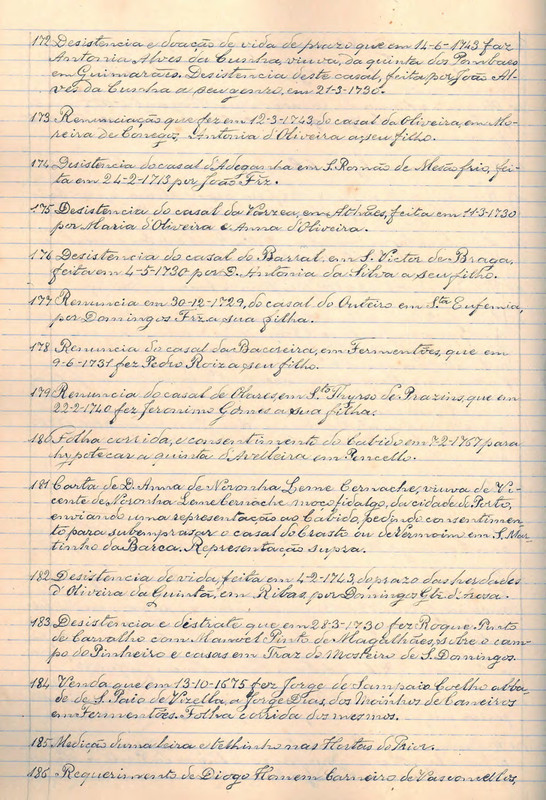 172 Desistencia e doação de vida de prazo que em 14-6-1743 faz
Antonia Alves da Cunha, viuva, da quinta dos Pombaes
em Guimarais. Desistencia deste casal, feita por João Al-
ves da Cunha a seu genro, em 21-3-1730.
173 Renunciação que fez em 12-3-1743, do casal da Oliveira, em Mo-
reira de Conegos, Antonia d'Oliveira a seu filho.
174 Desistencia do casal d'Adeganha em S. Romão de Mesãofrio, fei-
ta em 24-2-1713 por João Frz.
175 Desistencia do casal da Varzea, em Athães, feita em 11-3-1730
por Maria d'Oliveira e Anna d'Oliveira.
176 Desistencia do casal do Barral, em S. Victor de Braga,
feita em 4-5-1730 por D. Antonia da Silva a seu filho.
177 Renuncia em 30-12-1729, do casal do Outeiro em Sta Eufemia,
por Domingos Frz a sua filha.
178 Renuncia do casal da Bacoreira, em Fermentões, que em
9-6-1731 fez Pedro Roiz a seu filho.
179 Renuncia do casal de Olares, em Sto Thyrso de Prazins, que em
22-2-1740 fez Jeronimo Gomes a sua filha.
180 Folha corrida, e consentimento do Cabido em 2-1767 para
hypotecar a quinta d'Avelleira em Pencello.
181 Carta de D. Anna de Noronha Leme Cernache, viuva de Vi-
cente de Noronha Leme Cernache moço fidalgo, da cidade do Porto,
enviando uma representação ao Cabido, pedindo consentimen-
to para subemprasar o casal do Crasto ou de Vermoim em S. Mar-
tinho da Barca. Representação supra.
182 Desistencia de vida, feita em 4-2-1743, do prazo das herdades
d'Oliveira da Quintã, em Ribas, por Domingos Glz.
183 Desistencia e distrate que em 28-3-1730 fez Roque Pinto
de Carvalho com Manoel Pinto de Magalhães, sobre o cam-
po do Pinheiro e casas em Traz do Mosteiro de S. Domingos.
184 Venda que em 13-10-1675 fez Jorge de Sampaio Coelho abba-
de de S. Paio de Vizella, a Jorge Dias, dos Moinhos de Carreiros
em Fermentões. Folha corrida dos mesmos.
185 Medição duma leira e telhinho nas Hortas do Prior.
186 Requerimento de Diogo Homem Carneiro de Vasconcellos,